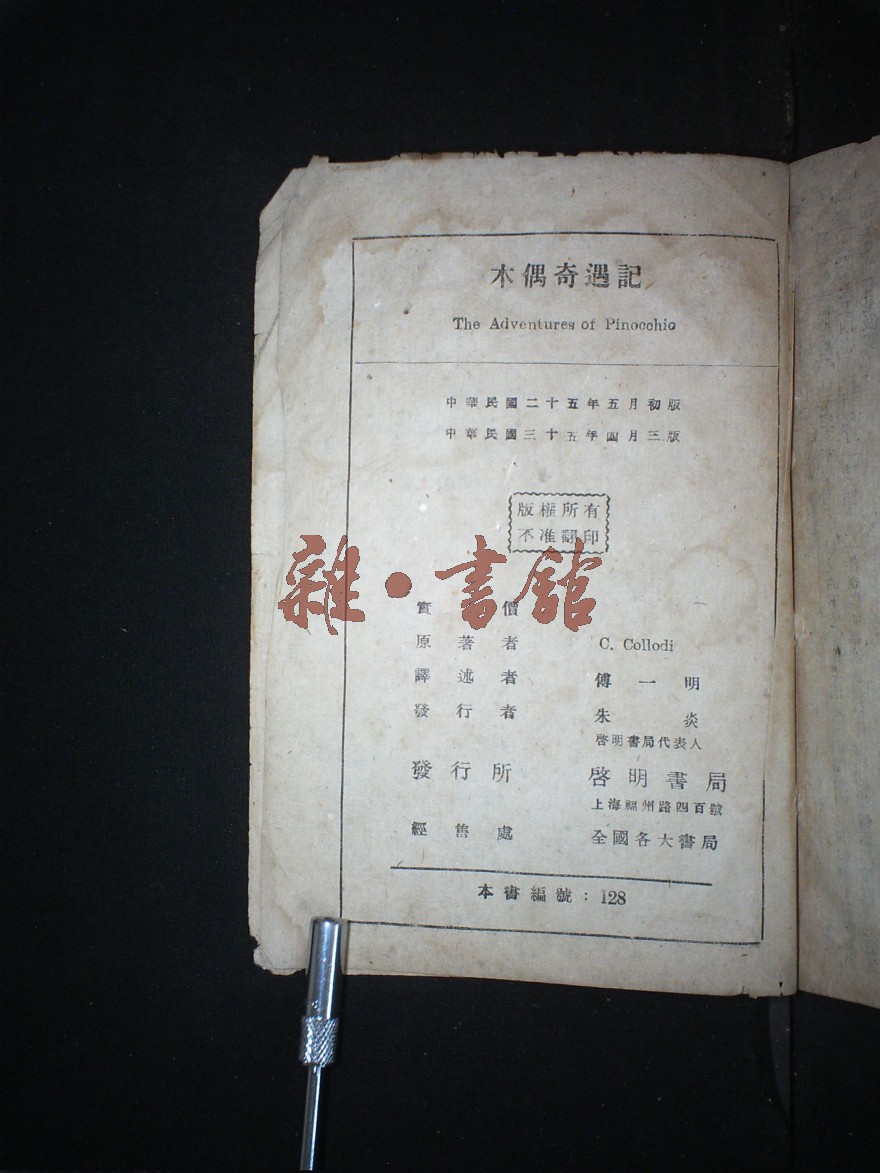 木偶奇遇記
The Adventures of Pinocchio
中華民國二十五年五月初版
中華民國三十五年四月三版
版權所有
不准翻印
雜·書館
實價
原著者 C. Collodi
譯述者 傅一明
發行者 朱炎
啓明書局代表人
發行所 啓明書局
上海福州路四百號
經售處 全國各大書局
本書編號：128